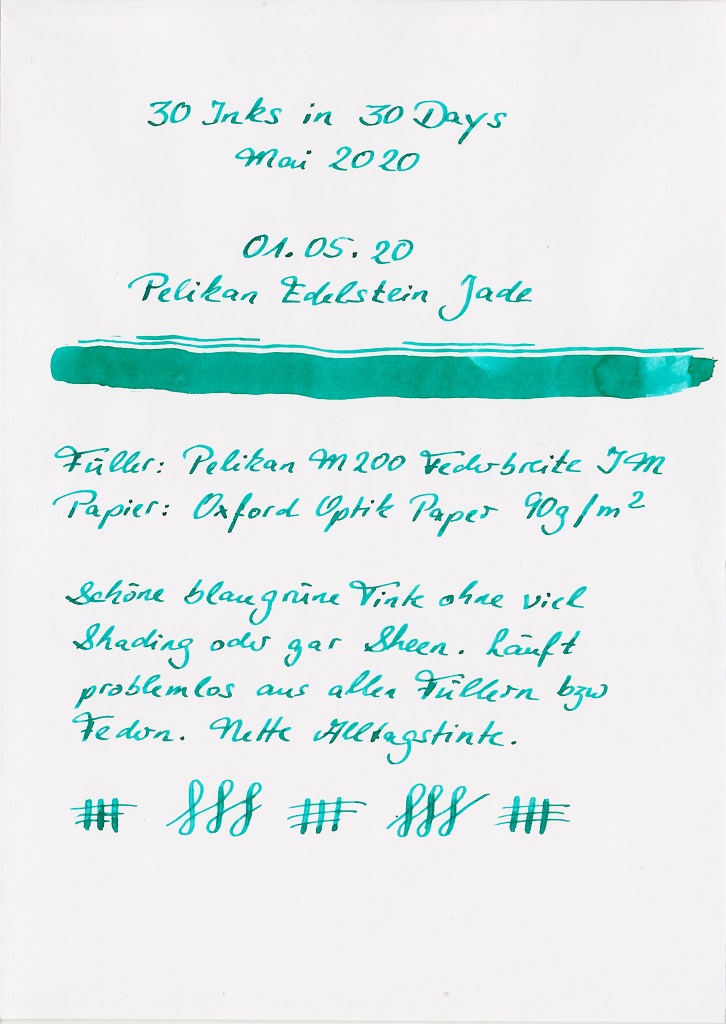 30 Inks in 30 Days
Mai 2020
01.05.20
Pelikan Edelstein Jade
Füller: Pelikan M200 Federbreite IM
Papier: Oxford Optik Paper 90g/m²
Schöne blaugrüne Tinte ohne viel
Shading oder gar Sheen. Läuft
problemlos aus allen Füllern bzw
Federn. Nette Alltagstinte.